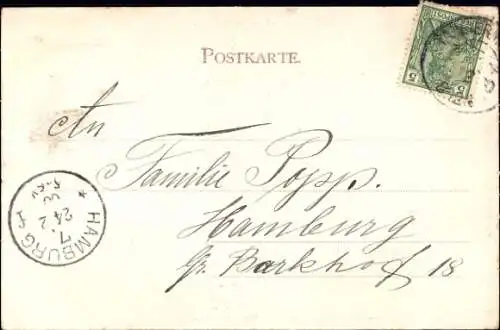 POSTKARTE.
An
Familie Popp.
Hamburg
Gr. Barkhof 18
HAMBURG
7.
24 2
5
5